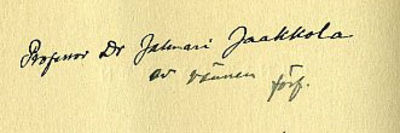 Professor Dr Jalmari Jaakkola
av vännen förf.